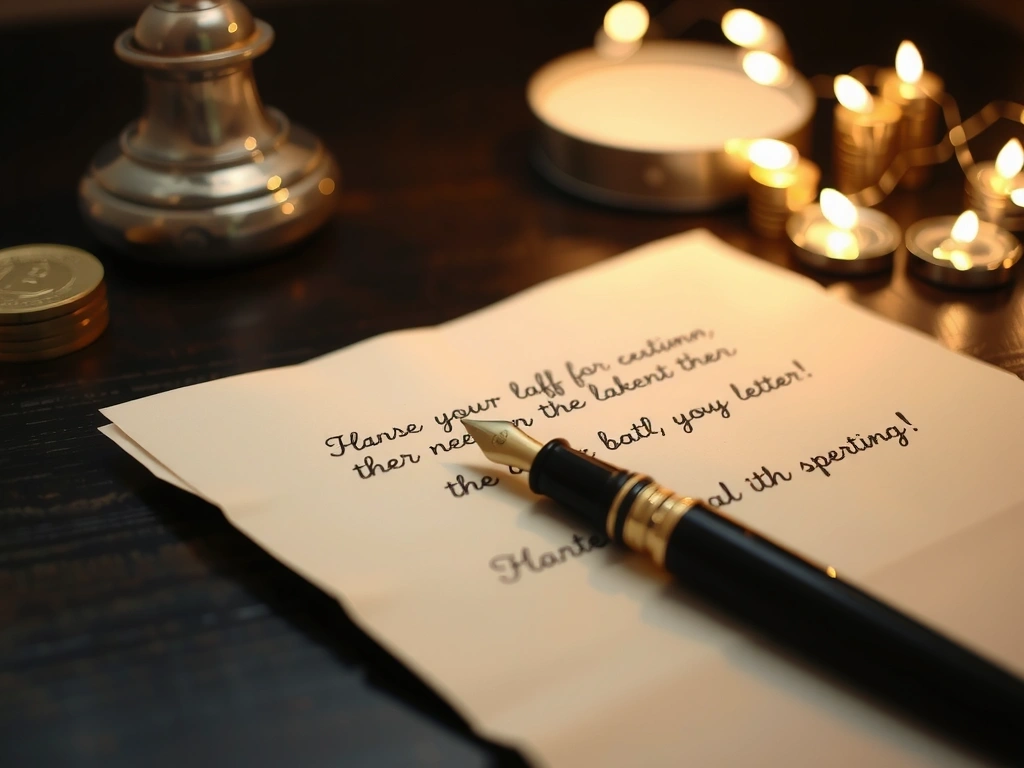 Hanse your laff for cutimn,
ther nee n the lakent then
the batl, youy letter!
Hante al ith sperting!